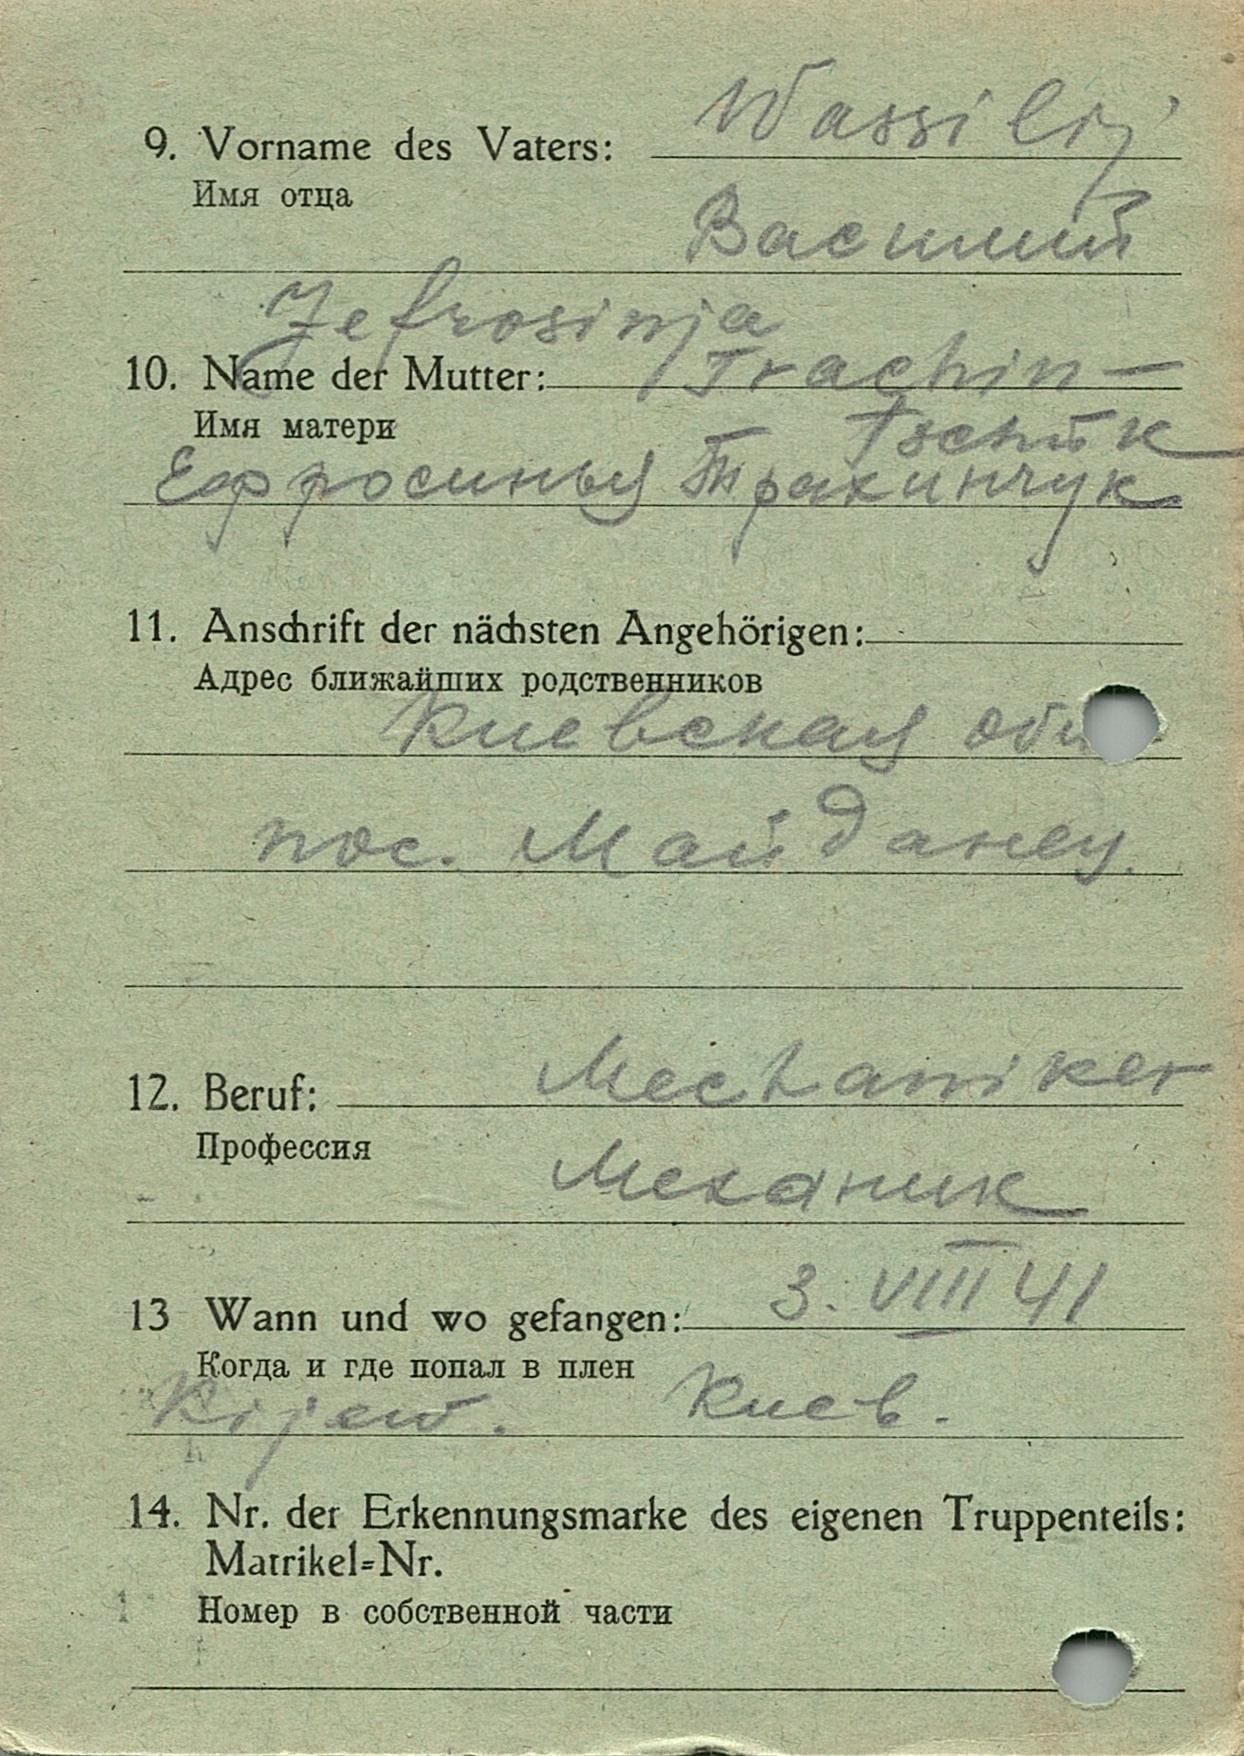 Wassilij
9. Vorname des Vaters:
Имя отца
Василий
Jefrosinja
10. Name der Mutter: Trachin-
Имя матери
tschŭk
Ефросинья Трахинчук
11. Anschrift der nächsten Angehörigen:
Адрес ближайших родственников
Киевская обл
пос. Майданец.
12. Beruf: Mechaniker
Профессия
Механик
13 Wann und wo gefangen: 3. VIII 41
Когда и где попал в плен
Kijew. Киев.
14. Nr. der Erkennungsmarke des eigenen Truppenteils:
Matrikel=Nr.
Номер в собственной части